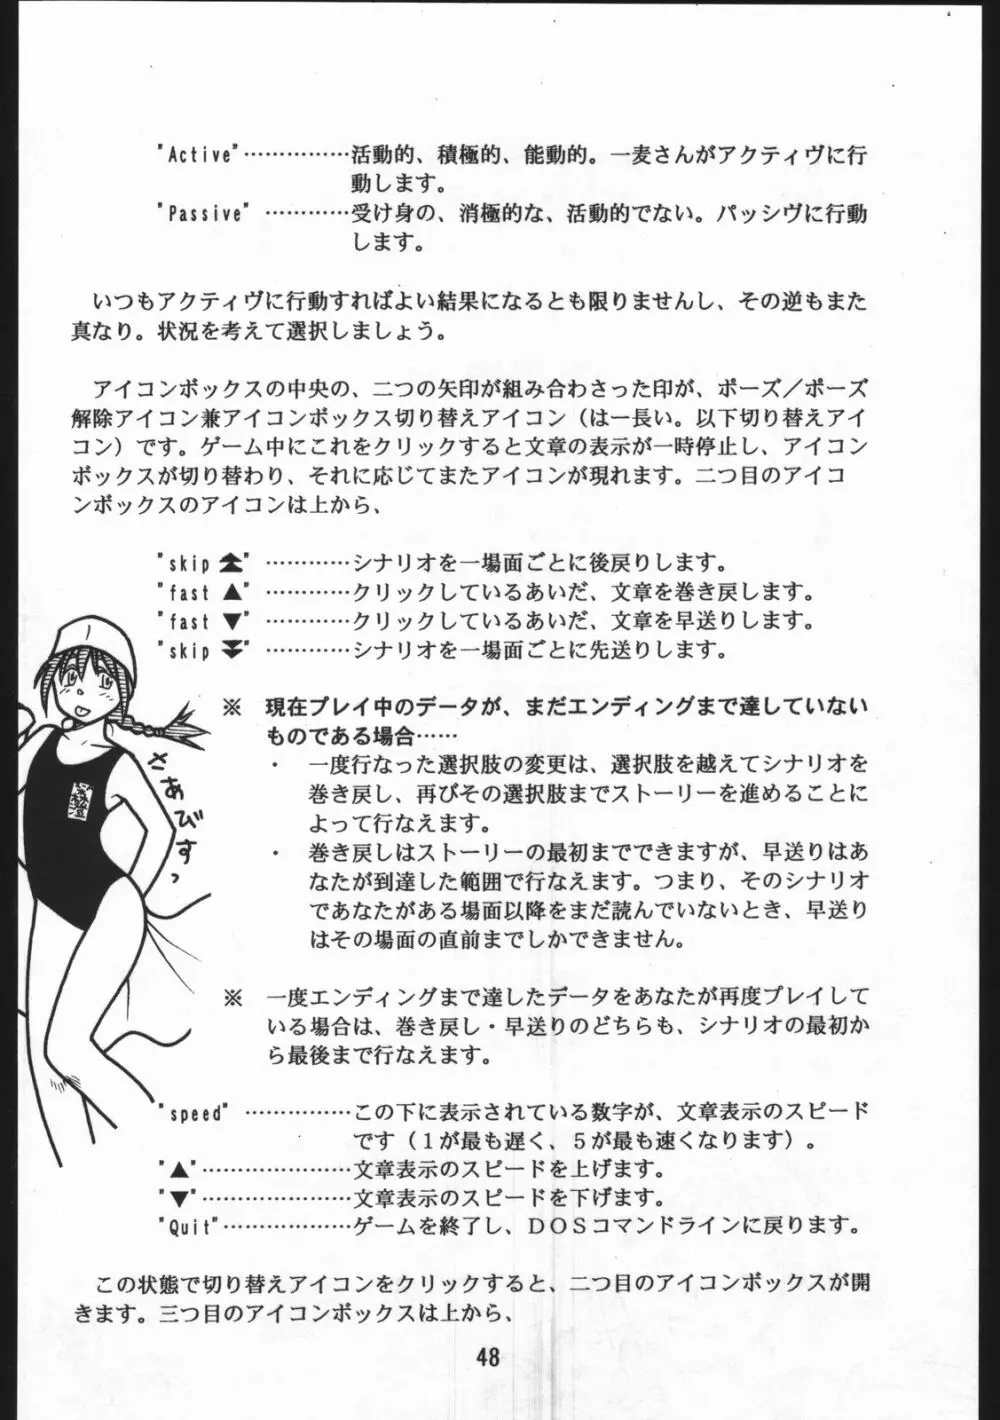 "Active"……………活動的、積極的、能動的。一麦さんがアクティヴに行
動します。
"Passive" …………受け身の、消極的な、活動的でない。パッシヴに行動
します。
いつもアクティヴに行動すればよい結果になるとも限りませんし、その逆もまた
真なり。状況を考えて選択しましょう。
アイコンボックスの中央の、二つの矢印が組み合わさった印が、ポーズ／ポーズ
解除アイコン兼アイコンボックス切り替えアイコン（はー長い。以下切り替えアイ
コン）です。ゲーム中にこれをクリックすると文章の表示が一時停止し、アイコン
ボックスが切り替わり、それに応じてまたアイコンが現れます。二つ目のアイコ
ンボックスのアイコンは上から、
"skip ⏫" …………シナリオを一場面ごとに後戻りします。
"fast ▲" …………クリックしているあいだ、文章を巻き戻します。
"fast ▼" …………クリックしているあいだ、文章を早送りします。
"skip ⏬" …………シナリオを一場面ごとに先送りします。
※ 現在プレイ中のデータが、まだエンディングまで達していない
ものである場合……
・ 一度行なった選択肢の変更は、選択肢を越えてシナリオを
巻き戻し、再びその選択肢までストーリーを進めることに
よって行なえます。
・ 巻き戻しはストーリーの最初までできますが、早送りはあ
なたが到達した範囲で行なえます。つまり、そのシナリオ
であなたがある場面以降をまだ読んでいないとき、早送り
はその場面の直前までしかできません。
さあびすっ
※ 一度エンディングまで達したデータをあなたが再度プレイして
いる場合は、巻き戻し・早送りのどちらも、シナリオの最初か
ら最後まで行なえます。
"speed" ……………この下に表示されている数字が、文章表示のスピード
です（１が最も遅く、５が最も速くなります）。
"▲"…………………文章表示のスピードを上げます。
"▼"…………………文章表示のスピードを下げます。
"Quit"………………ゲームを終了し、ＤＯＳコマンドラインに戻ります。
この状態で切り替えアイコンをクリックすると、二つ目のアイコンボックスが開
きます。三つ目のアイコンボックスは上から、
48